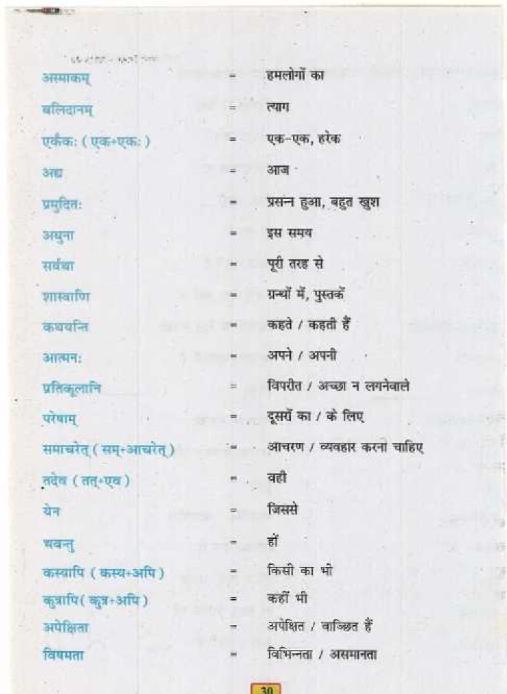 अस्माकम् = हमलोगों का
बलिदानम् = त्याग
एकैकः ( एक+एकः ) = एक-एक, हरेक
अद्य = आज
प्रमुदितः = प्रसन्न हुआ, बहुत खुश
अधुना = इस समय
सर्वथा = पूरी तरह से
शास्त्राणि = ग्रन्थों में, पुस्तकें
कथयन्ति = कहते / कहती हैं
आत्मनः = अपने / अपनी
प्रतिकूलानि = विपरीत / अच्छा न लगनेवाले
परेषाम् = दूसरों का / के लिए
समाचरेत् ( सम्+आचरेत् ) = आचरण / व्यवहार करना चाहिए
तदेव ( तत्+एव ) = वही
येन = जिससे
भवन्तु = हों
कस्यापि ( कस्य+अपि ) = किसी का भी
कुत्रापि( कुत्र+अपि ) = कहीं भी
अपेक्षिता = अपेक्षित / वाञ्छित हैं
विषमता = विभिन्नता / असमानता
30